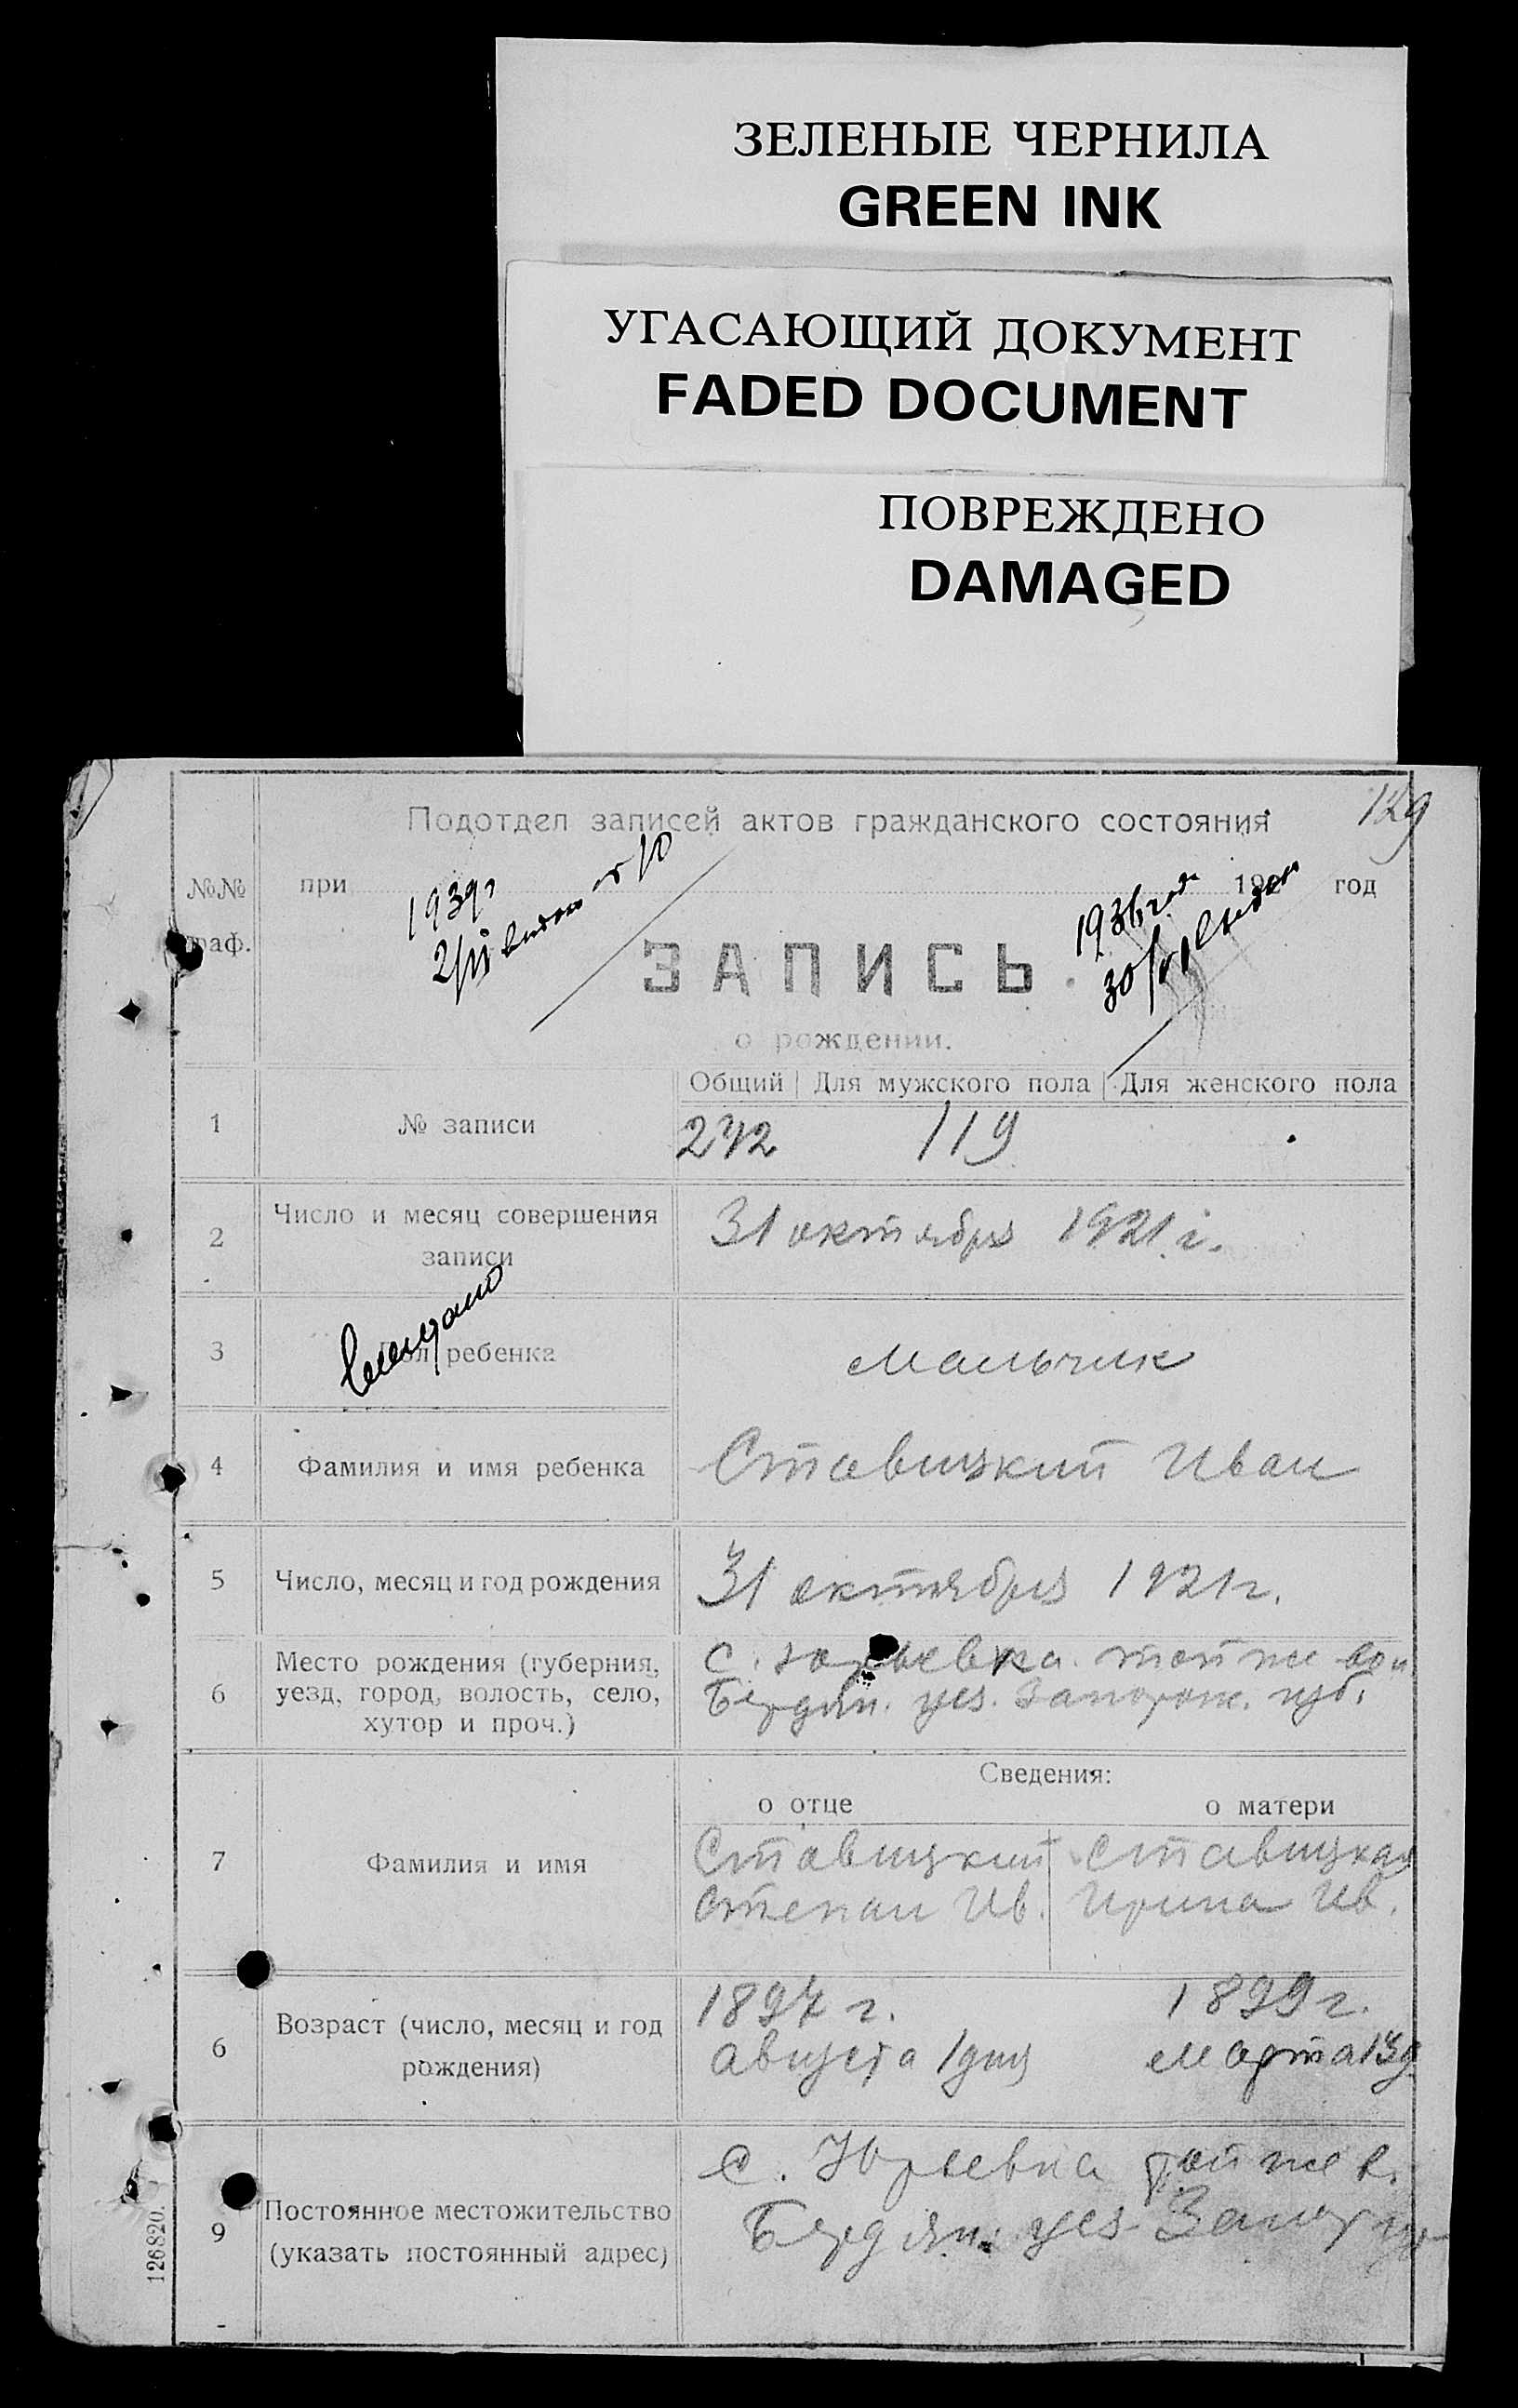 ЗЕЛЕНЫЕ ЧЕРНИЛА
GREEN INK
УГАСАЮЩИЙ ДОКУМЕНТ
FADED DOCUMENT
ПОВРЕЖДЕНО
DAMAGED
129
Подотдел записей актов гражданского состояния
№№ при 192 год
граф.
1939г
1936 года
ЗАПИСЬ
о рождении.
Общий Для мужского пола Для женского пола
1 № записи 242 119
2 Число и месяц совершения
записи
31 октября 1921 г.
3 Пол ребенка мальчик
4 Фамилия и имя ребенка Ставицкий Иван
5 Число, месяц и год рождения 31 октября 1921 г.
6 Место рождения (губерния,
уезд, город, волость, село,
хутор и проч.)
с. Юрьевка той же вол
Бердян. уез. Запорож. губ.
Сведения:
о отце о матери
7 Фамилия и имя
Ставицкий Ставицкая
Степан Ив. Ирина Ив.
6 Возраст (число, месяц и год
рождения)
1897 г. 1899 г.
августа 1 дня марта 13 д.
9 Постоянное местожительство
(указать постоянный адрес)
с. Юрьевка той же в.
Бердян. уез
126820.